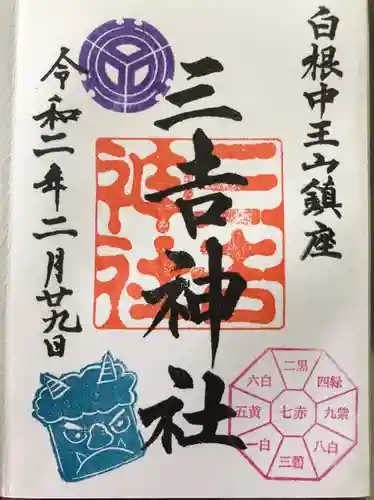 白根中王山鎮座
三吉神社
三吉神社
令和二年二月廿九日
二黒
四緑
九紫
八白
三碧
一白
五黄
六白
七赤